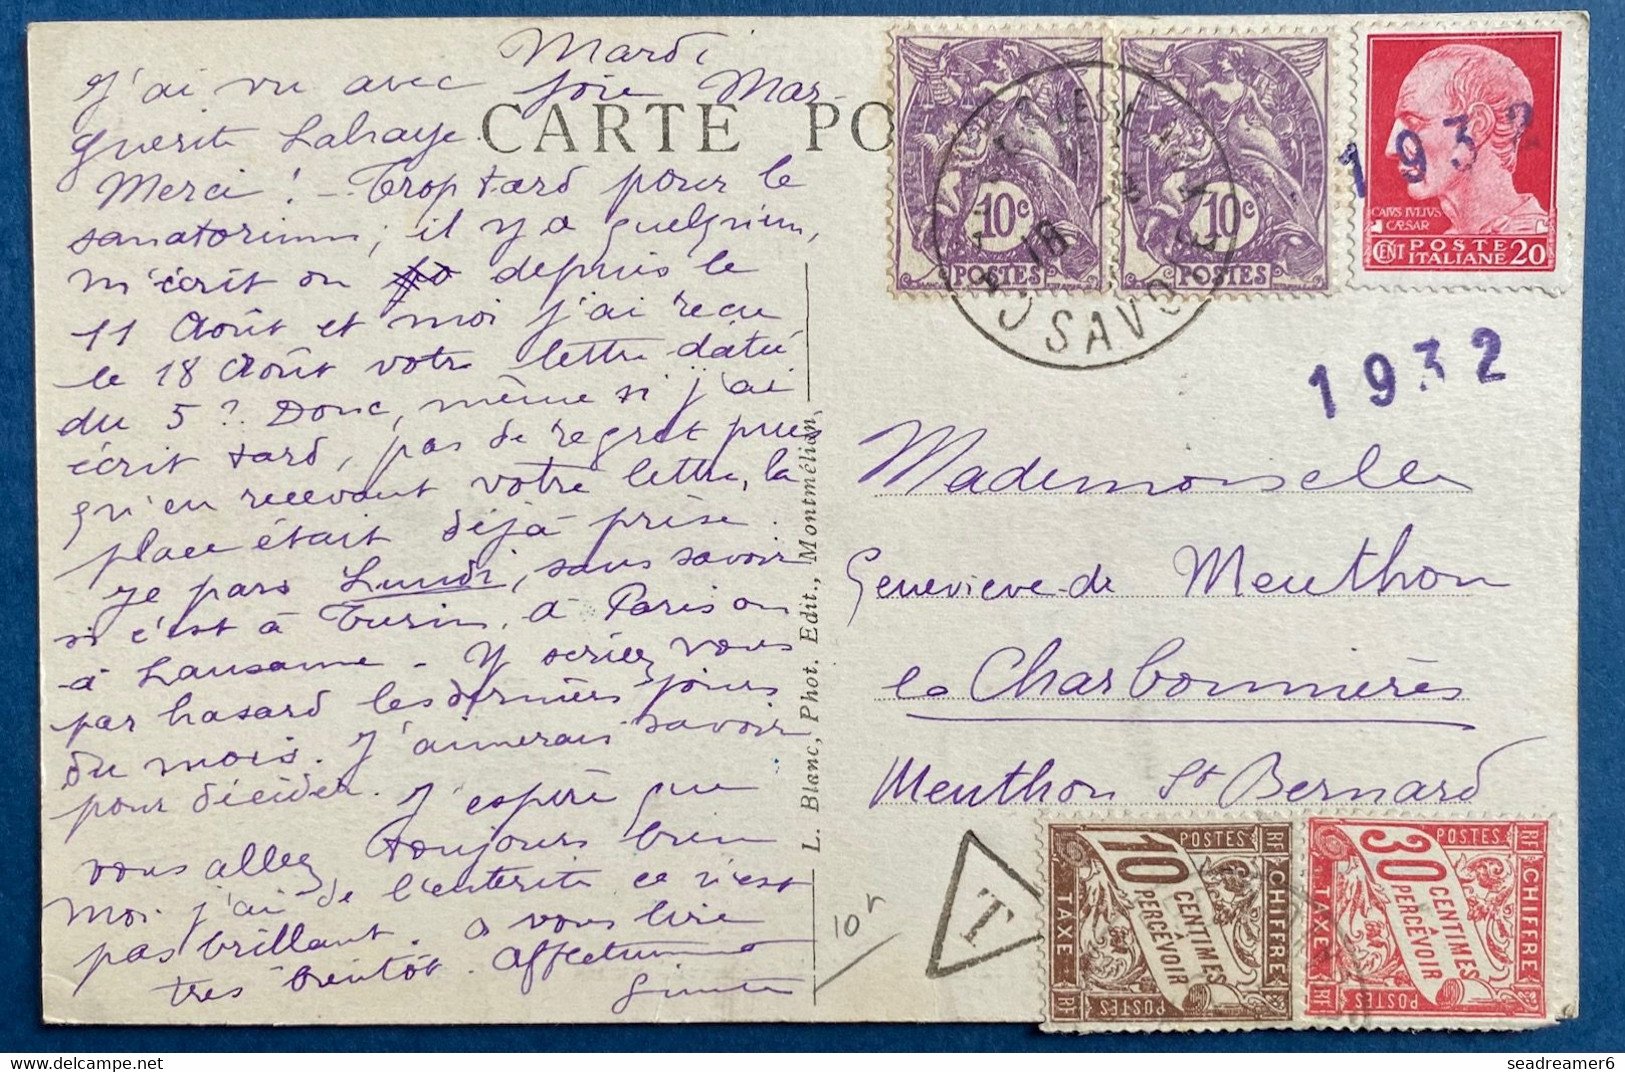 Mardi
J'ai vu avec joie Mar-
guerite Lahaye
Merci ! - Trop tard pour le
sanatorium ; il y a quelqu'un,
m'écrit on depuis le
11 Août et moi j'ai reçu
le 18 Août votre lettre datée
du 5 ? Donc, même si j'ai
écrit tard, pas de regret puis
qu'en recevant votre lettre, la
place était déjà prise.
Je pars Lundi, sans savoir
si c'est à Turin, à Paris ou
à Lausanne - Y seriez vous
par hasard les derniers jours
du mois. J'aimerais savoir
pour décider. J'espère que
vous allez toujours bien
Moi j'ai de l'entérite ce n'est
pas brillant. à vous lire
très bientôt. Affectueuse
CARTE PO
L. Blanc, Phot. Edit., Montmélian,
10c
POSTES
10c
POSTES
18
SAVO
1932
CAIVS IVLIVS
CÆSAR
CENT POSTE ITALIANE 20
1932
Mademoiselle
Geneviève de Menthon
les Charbonnières
Menthon St Bernard
10
T
POSTES RF
10 CENTIMES
À
PERCEVOIR
CHIFFRE
TAXE
RF POSTES RF
POSTES RF
30 CENTIMES
À
PERCEVOIR
CHIFFRE
TAXE
RF POSTES RF
seadreamer6